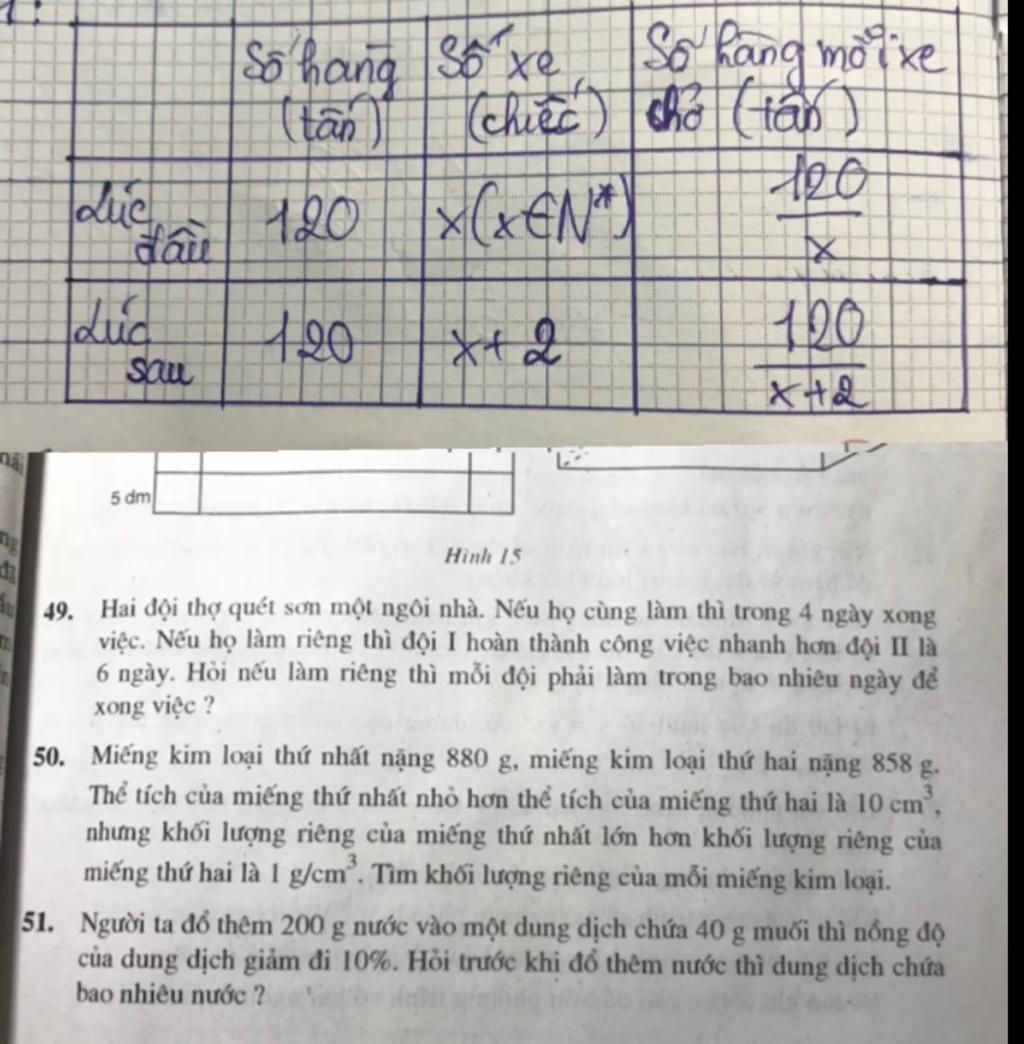 1:
Số hàng Số xe Số hàng mỗi xe
(tấn) (chiếc) chở (tấn)
Lúc đầu 120 x(x∈N*) 120/x
Lúc sau 120 x+2 120/(x+2)
5 dm
Hình 15
49. Hai đội thợ quét sơn một ngôi nhà. Nếu họ cùng làm thì trong 4 ngày xong
việc. Nếu họ làm riêng thì đội I hoàn thành công việc nhanh hơn đội II là
6 ngày. Hỏi nếu làm riêng thì mỗi đội phải làm trong bao nhiêu ngày để
xong việc ?
50. Miếng kim loại thứ nhất nặng 880 g, miếng kim loại thứ hai nặng 858 g.
Thể tích của miếng thứ nhất nhỏ hơn thể tích của miếng thứ hai là 10 cm³,
nhưng khối lượng riêng của miếng thứ nhất lớn hơn khối lượng riêng của
miếng thứ hai là 1 g/cm³. Tìm khối lượng riêng của mỗi miếng kim loại.
51. Người ta đổ thêm 200 g nước vào một dung dịch chứa 40 g muối thì nồng độ
của dung dịch giảm đi 10%. Hỏi trước khi đổ thêm nước thì dung dịch chứa
bao nhiêu nước ?